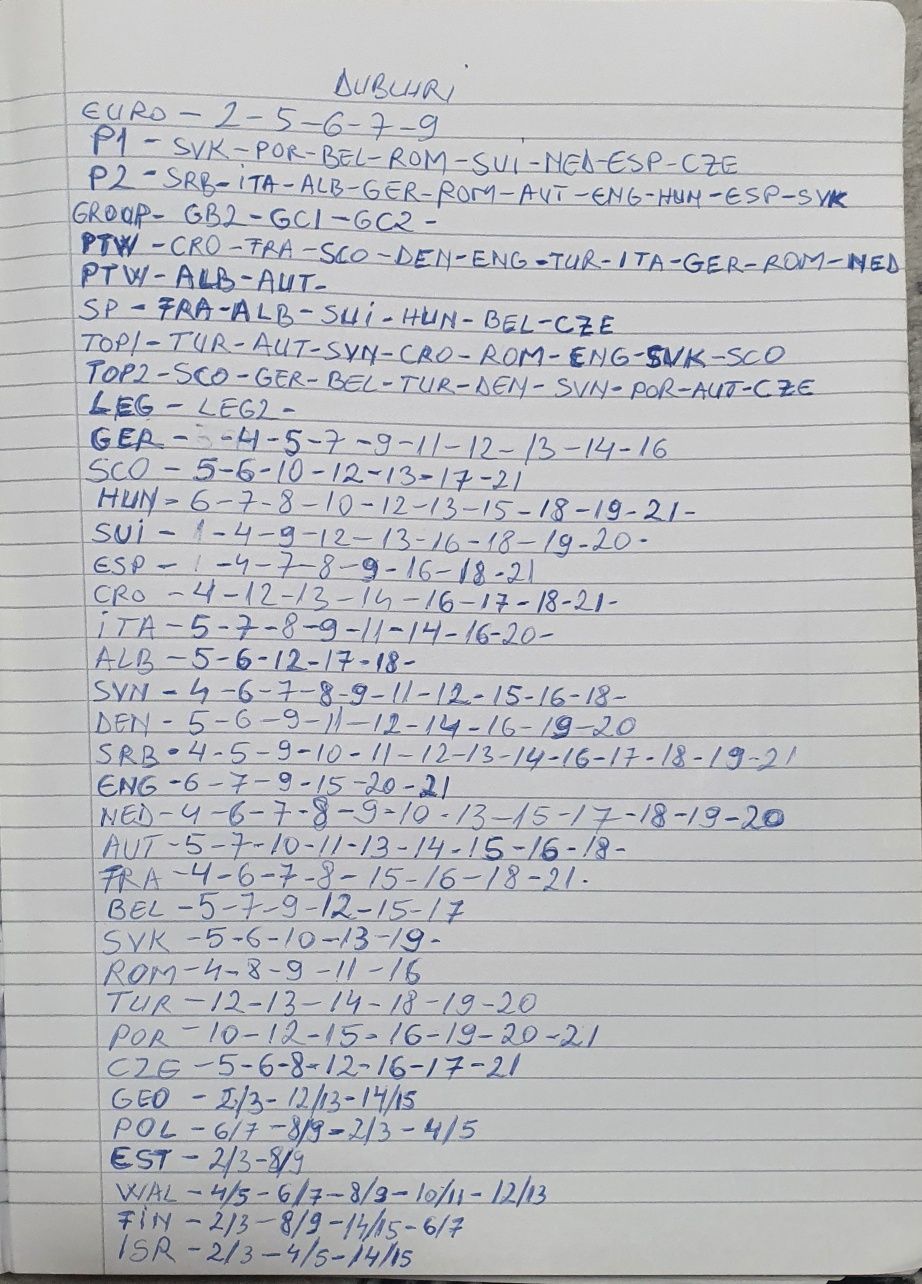 DUBLURI
EURO - 2-5-6-7-9
P1 - SVK-POR-BEL-ROM-SUI-NED-ESP-CZE
P2 - SRB-ITA-ALB-GER-ROM-AUT-ENG-HUN-ESP-SVK
GROUP- GB2-GC1-GC2-
PTW -CRO-FRA-SCO-DEN-ENG-TUR-ITA-GER-ROM-NED
PTW- ALB-AUT-
SP - FRA-ALB-SUI-HUN-BEL-CZE
TOP1-TUR-AUT-SVN-CRO-ROM-ENG-SVK-SCO
TOP2-SCO-GER-BEL-TUR-DEN-SVN-POR-AUT-CZE
LEG - LEG2-
GER - -4-5-7-9-11-12-13-14-16
SCO - 5-6-10-12-13-17-21
HUN - 6-7-8-10-12-13-15-18-19-21-
SUI - 1-4-9-12-13-16-18-19-20-
ESP - 1-4-7-8-9-16-18-21
CRO -4-12-13-14-16-17-18-21-
ITA -5-7-8-9-11-14-16-20-
ALB -5-6-12-17-18-
SVN - 4-6-7-8-9-11-12-15-16-18-
DEN - 5-6-9-11-12-14-16-19-20
SRB -4-5-9-10-11-12-13-14-16-17-18-19-21
ENG -6-7-9-15-20-21
NED-4-6-7-8-9-10-13-15-17-18-19-20
AUT-5-7-10-11-13-14-15-16-18-
FRA -4-6-7-8-15-16-18-21.
BEL -5-7-9-12-15-17
SVK -5-6-10-13-19-
ROM-4-8-9-11-16
TUR -12-13-14-18-19-20
POR -10-12-15-16-19-20-21
CZE -5-6-8-12-16-17-21
GEO - 2/3- 12/13-14/15
POL - 6/7-8/9-2/3-4/5
EST - 2/3-8/9
WAL -4/5-6/7-8/9-10/11-12/13
FIN - 2/3-8/9-14/15-6/7
ISR - 2/3-4/5-14/15